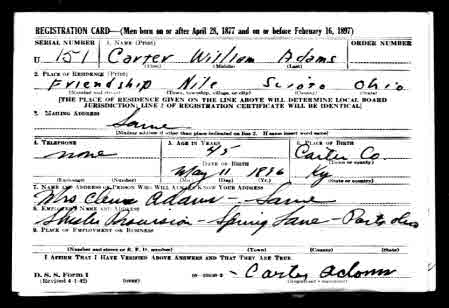 REGISTRATION CARD—(Men born on or after April 28, 1877 and on or before February 16, 1897)
SERIAL NUMBER 1. NAME (Print) ORDER NUMBER
U 151 Carter William Adams
(First) (Middle) (Last)
2. PLACE OF RESIDENCE (Print)
Friendship Nile Scioto Ohio
(Number and street) (Town, township, village, or city) (County) (State)
[THE PLACE OF RESIDENCE GIVEN ON THE LINE ABOVE WILL DETERMINE LOCAL BOARD
JURISDICTION; LINE 2 OF REGISTRATION CERTIFICATE WILL BE IDENTICAL]
3. MAILING ADDRESS
Same
[Mailing address if other than place indicated on line 2. If same insert word same]
4. TELEPHONE 5. AGE IN YEARS 6. PLACE OF BIRTH
none 45 Carter Co.
(Town or county)
DATE OF BIRTH
May 11 1896 Ky
(Exchange) (Number) (Mo.) (Day) (Yr.) (State or country)
7. NAME AND ADDRESS OF PERSON WHO WILL ALWAYS KNOW YOUR ADDRESS
Mrs Adams — Same
8. EMPLOYER'S NAME AND ADDRESS
— Spring Lane —
9. PLACE OF EMPLOYMENT OR BUSINESS
(Number and street or R. F. D. number) (Town) (County) (State)
I AFFIRM THAT I HAVE VERIFIED ABOVE ANSWERS AND THAT THEY ARE TRUE.
D. S. S. Form 1
(Revised 4-1-42) Carter Adams
(Registrant's signature)